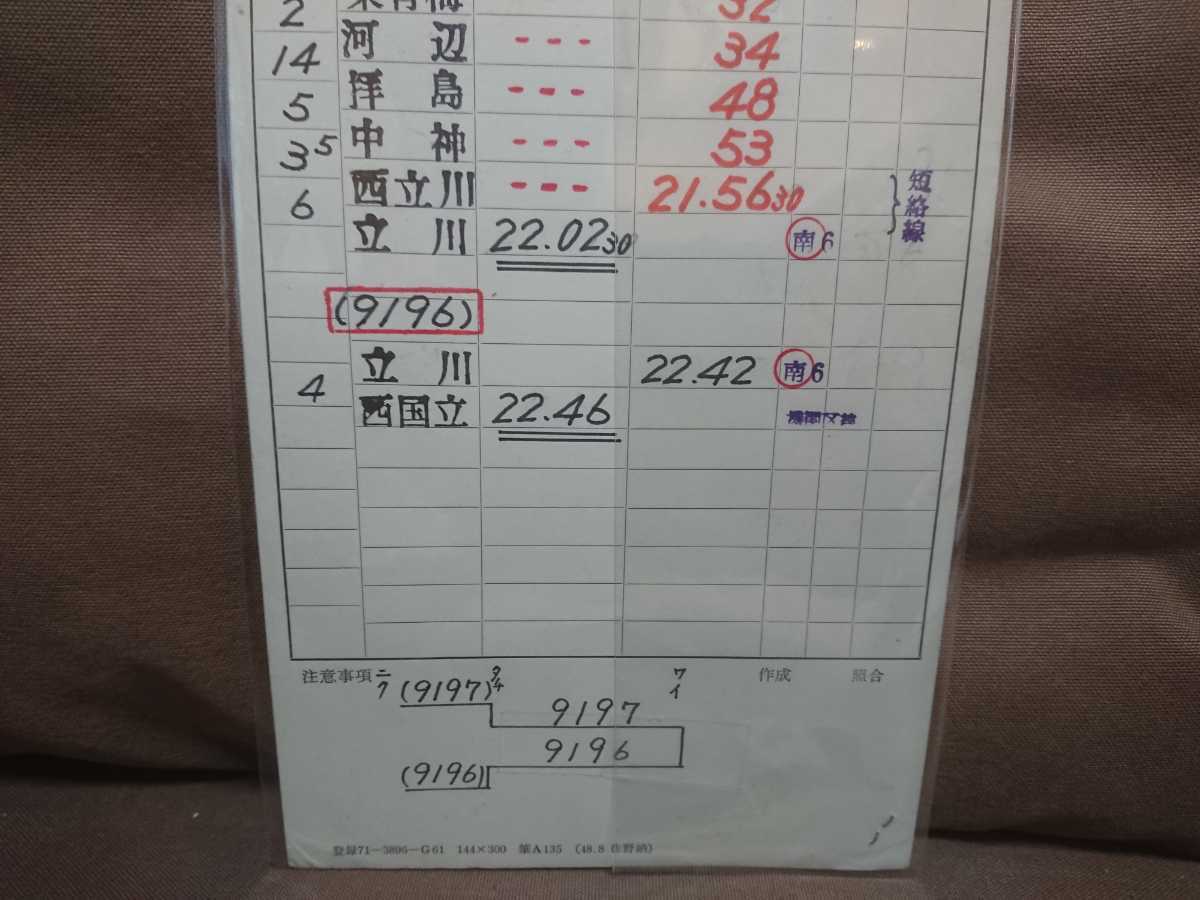 2 東青梅 32
14 河辺 --- 34
5 拝島 --- 48
3 5 中神 --- 53
6 西立川 --- 21.56 30 短絡線
立川 22.02 30 南6
(9196)
立川 22.42 南6
4 西国立 22.46
注意事項 ニク (9197) タチ ワイ 作成 照合
9197
9196
(9196)
登録71-3896-G61 144×300 筆A135 (48.8 佐野納)